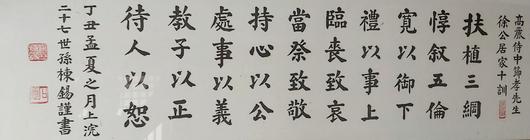 高麗侍中節孝先生
徐公居家十訓
扶植三綱
惇叙五倫
寬以御下
禮以事上
臨喪致哀
當祭致敬
持心以公
處事以義
教子以正
待人以恕
丁丑孟夏之月上浣
二十七世孫棟錫謹書